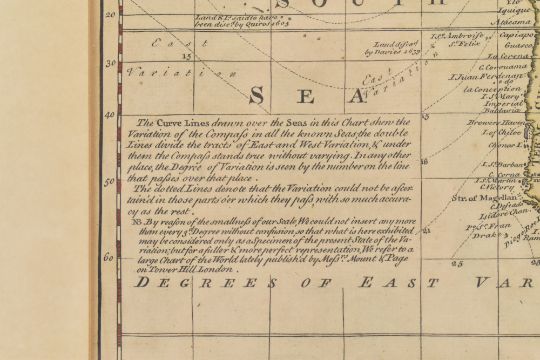 SOUTH
20
Land & Is. said to have
been disc.d by Quiros 1605
Ylo
Iquique
Athicama
East
15
Variation
30
Land disco.d
by Davies 1659
I.St. Ambroise
St. Felix
Copiapo
Guasco
La Serena
C. Corouama
I. Juan Fernandes
la Conception
I. St. Mary
Imperial
Baldivia
East
Variation
SEA
40
Brewers Haven
I. of Chiloe
Chonos I.
The Curve Lines drawn over the Seas in this Chart shew the
Variation of the Compass in all the known Seas, the double
Lines devide the tracts of East and West Variation, & under
them the Compass stands true without varying. In any other
place, the Degree of Variation is seen by the number on the line
that passes over that place.
The dotted Lines denote that the Variation could not be ascer-
tain'd in those parts o'er which they pass with so much accura-
cy as the rest.
NB. By reason of the smallness of our Scale, We could not insert any more
than every 5th Degree without confusion, so that what is here exhibited
may be considered only as a Specimen of the present State of the Va-
riation; but for a fuller & more perfect representation, We refer to a
large Chart of the World lately publish'd by Mess.rs Mount & Page
on Tower Hill London.
50
I.S. Barban
C. Corso
I. St. Martin
C. Victory
Str. of Magellan
C. Deseado
Isidore Chan.
P.t St. Fran
Drake
60
25
25
DEGREES OF EAST VAR